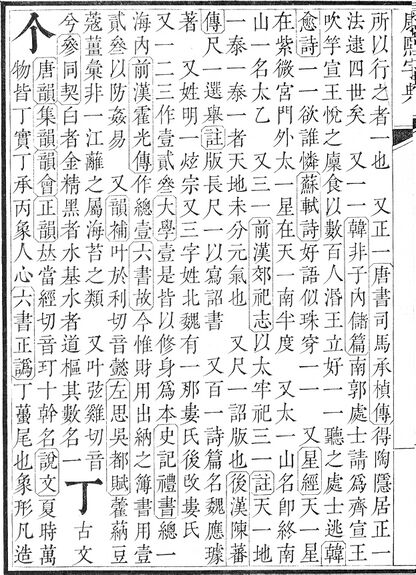 康熙字典
所以行之者一也 又正一唐書司馬承楨傳得陶隱居正一
法逮四世矣 又一一韓非子內儲篇南郭處士請爲齊宣王
吹竽宣王悅之廩食以數百人湣王立好一一聽之處士逃韓
愈詩一一欲誰憐蘇軾詩好語似珠穿一一 又星經天一星
在紫微宮門外太一星在天一南半度 又太一山名卽終南
山一名太乙 又三一前漢郊祀志以太牢祀三一註天一地
一泰一泰一者天地未分元氣也 又尺一詔版也後漢陳蕃
傳尺一選舉註版長尺一以寫詔書 又百一詩篇名魏應璩
著 又姓明一炫宗又三字姓北魏有一那婁氏後改婁氏
又一二三作壹貳叄大學壹是皆以修身爲本史記禮書總一
海內前漢霍光傳作總壹六書故今惟財用出納之簿書用壹
貳叄以防姦易 又韻補叶於利切音懿左思吳都賦藿蒳豆
蔻薑彙非一江蘺之屬海苔之類 又叶弦雞切音
兮參同契白者金精黑者水基水者道樞其數名一 丁 古文
个
唐韻集韻韻會正韻𠀤當經切音玎十幹名說文夏時萬
物皆丁實丁承丙象人心六書正譌丁蠆尾也象形凡造